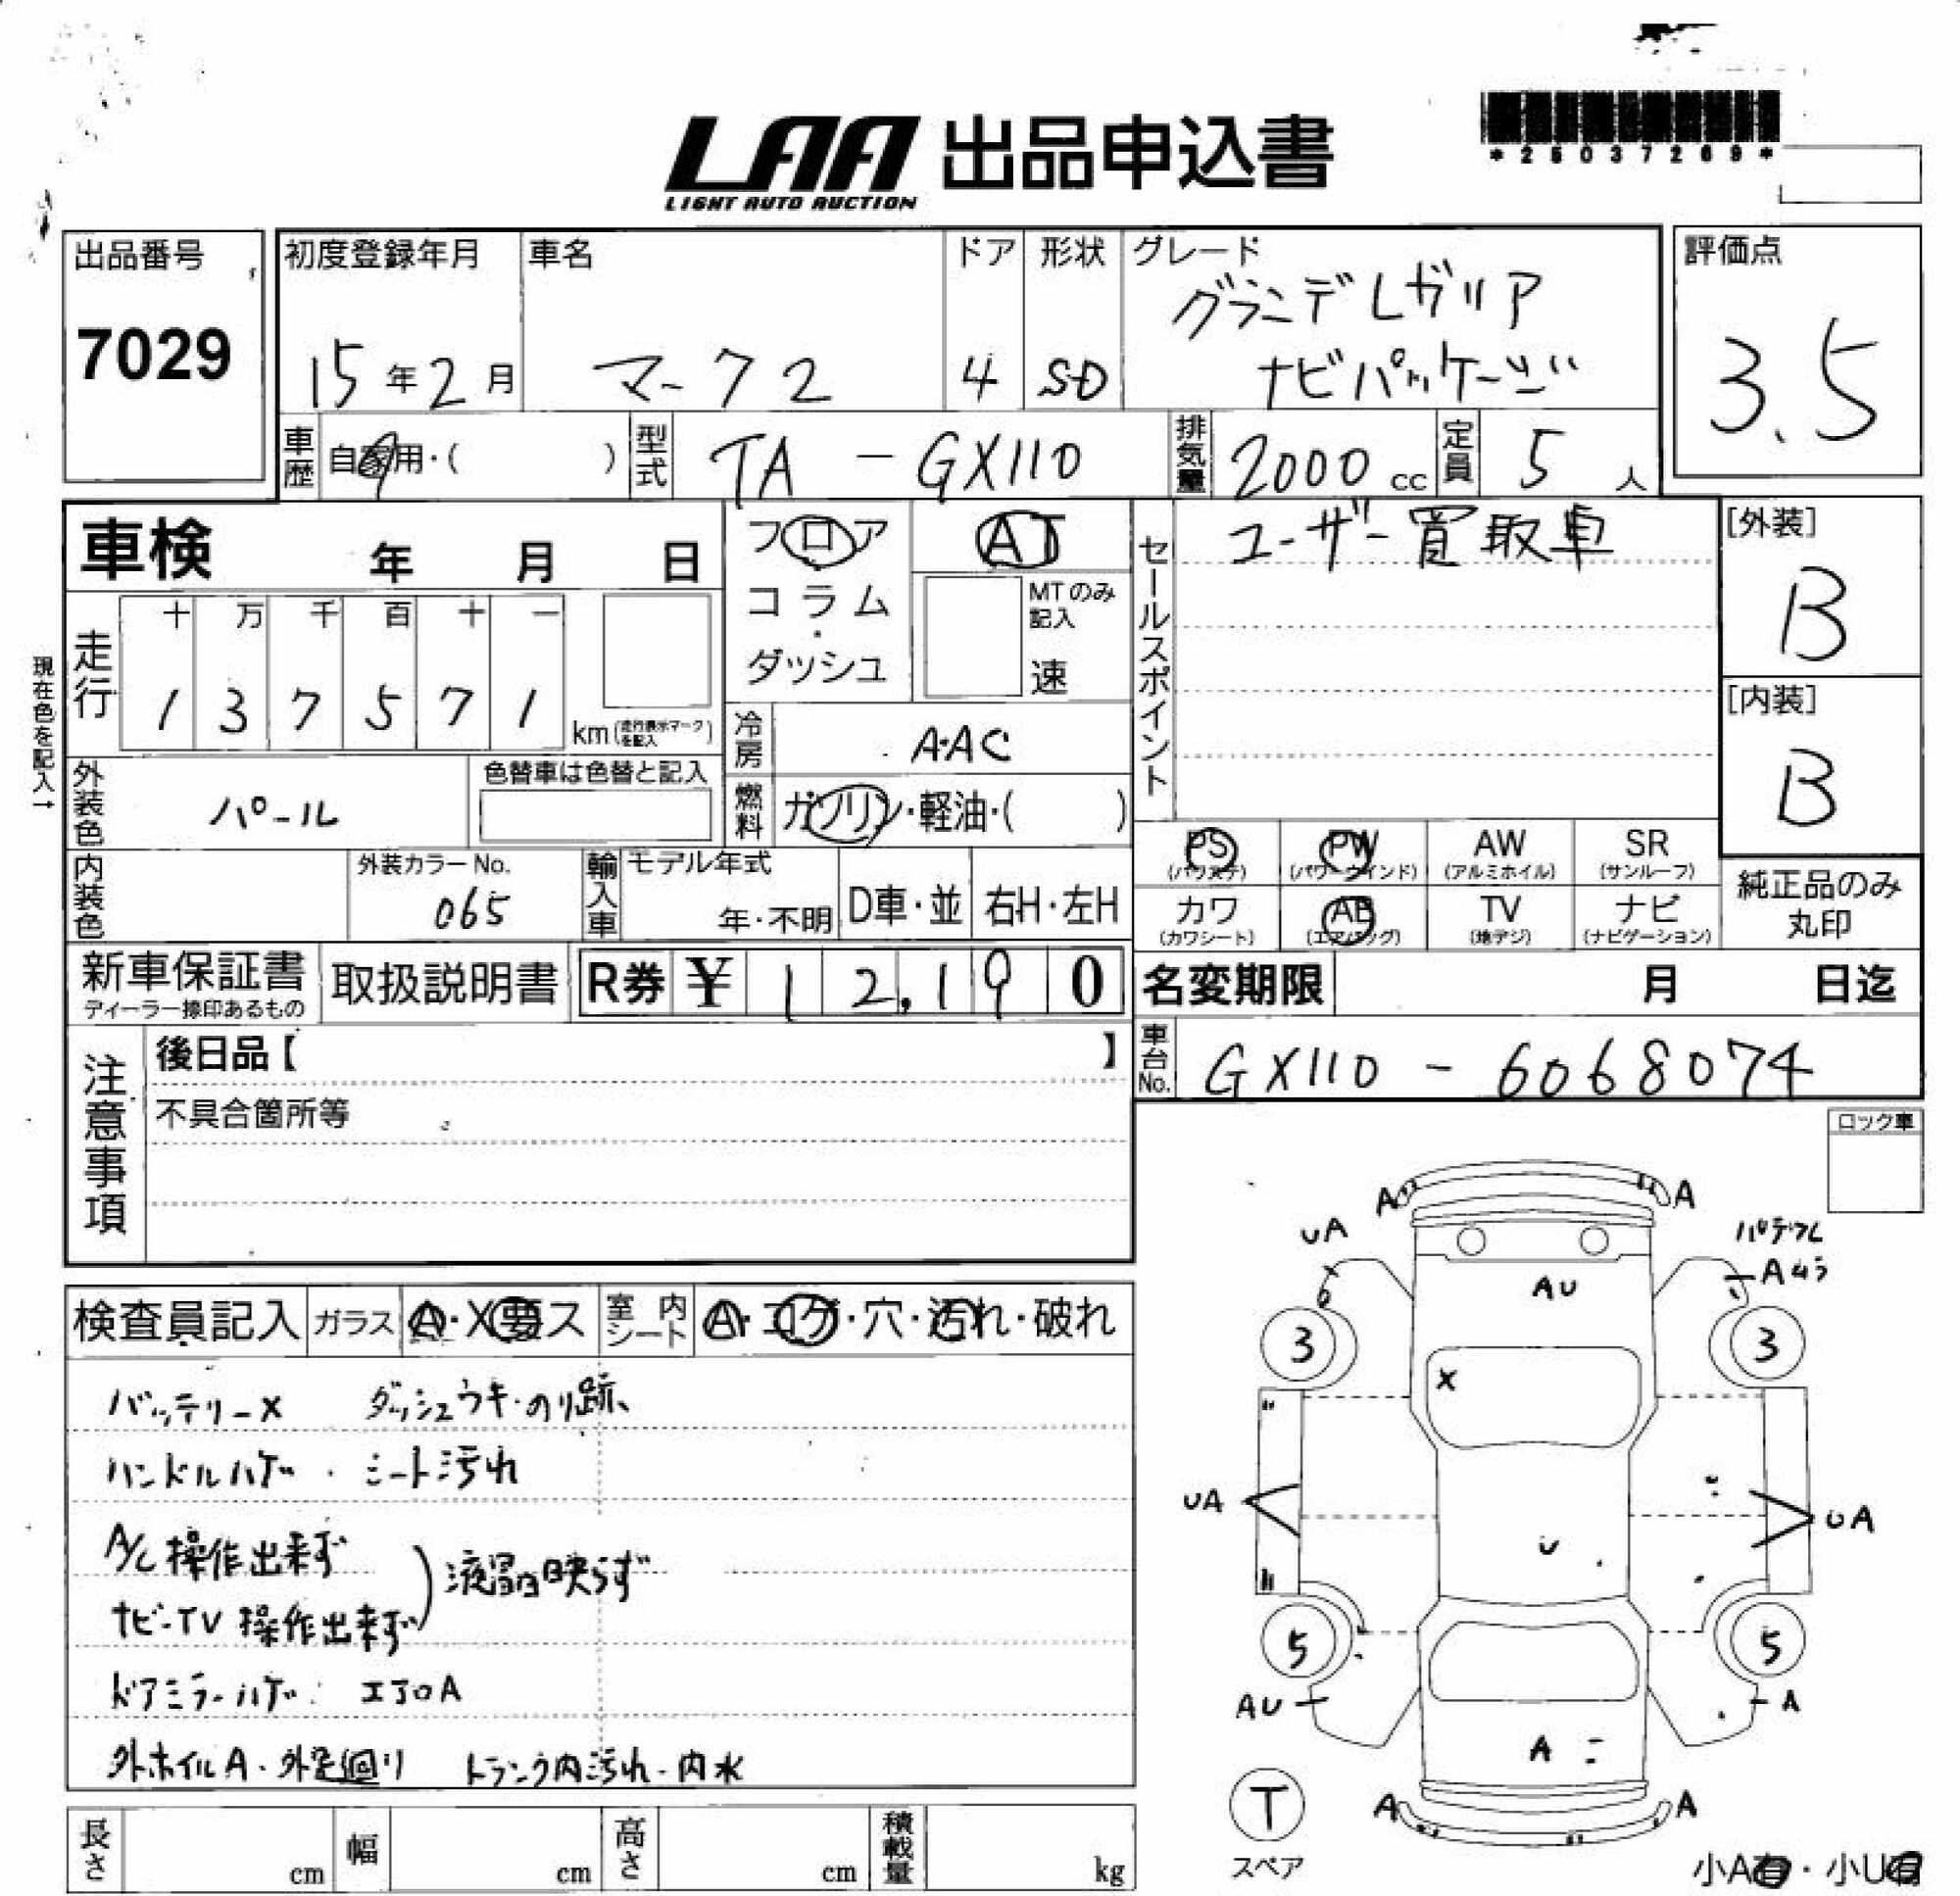 LAA 出品申込書
LIGHT AUTO AUCTION
*25037269*
出品番号
7029
初度登録年月
15年2月
車名
マーク2
ドア
4
形状
SD
グレード
グランデレガリア
ナビパッケージ
評価点
3.5
車歴
自家用・( )
型式
TA - GX110
排気量
2000 cc
定員
5 人
車検 年 月 日
フロア
コラム
・
ダッシュ
AT
MTのみ
記入
速
セールスポイント
ユーザー買取車
[外装]
B
[内装]
B
現在色を記入→
走行
十 万 千 百 十 一
1 3 7 5 7 1
km (走行表示マークを記入)
冷房
AAC
外装色
パール
色替車は色替と記入
燃料
ガソリン・軽油・( )
PS AW SR
PW
(パワステ) (パワーウインド) (アルミホイル) (サンルーフ)
カワ AB TV ナビ
(カワシート) (エアバッグ) (地デジ) (ナビゲーション)
純正品のみ
丸印
内装色
外装カラーNo.
065
輸入車
モデル年式
年・不明
D車・並
右H・左H
新車保証書
ディーラー捺印あるもの
取扱説明書
R券 ¥ 12,190
名変期限 月 日迄
注意事項
後日品【 】
不具合箇所等
車台No.
GX110 - 6068074
ロック車
検査員記入
ガラス
A・X要ス
室内シート
A・コゲ・穴・汚れ・破れ
バッテリーX ダッシュウキ・のり跡、
ハンドルハゲ・シート汚れ
A/C 操作出来ず
ナビ・TV 操作出来ず
液晶映らず
ドアミラーハゲ・エアロA
外ホイルA・外足廻り トランク内汚れ・内水
A A
UA
Aムラ
AU
3 3
X
UA UA
U
5 5
AU A
A
T
スペア
A A
小A有・小U有
長さ cm
幅 cm
高さ cm
積載量 kg